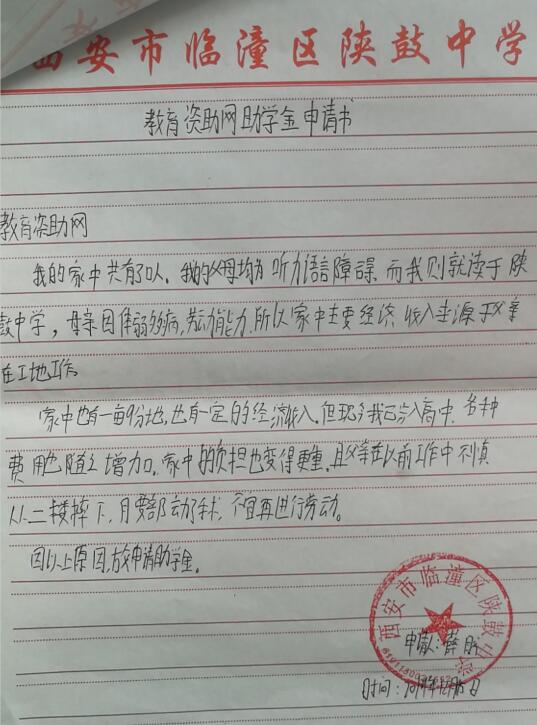 西安市临潼区陕鼓中学
教育资助网助学金申请书
教育资助网
我的家中共有3口人。我的父母均为听力语言障碍,而我则就读于陕
鼓中学,母亲因体弱多病,劳动能力,所以家中主要经济收入来源于父亲
在工地工作。
家中也有一亩9分地,也有一定的经济收入。但现今我已步入高中,各种
费用也随之增加。家中的负担也变得更重,且父亲在以前工作中不慎
从二楼摔下,腰部动手术,不宜再进行劳动。
因以上原因,故申请助学金。
西安市临潼区陕鼓中学
申请人:薛
时间:2019年12月5日